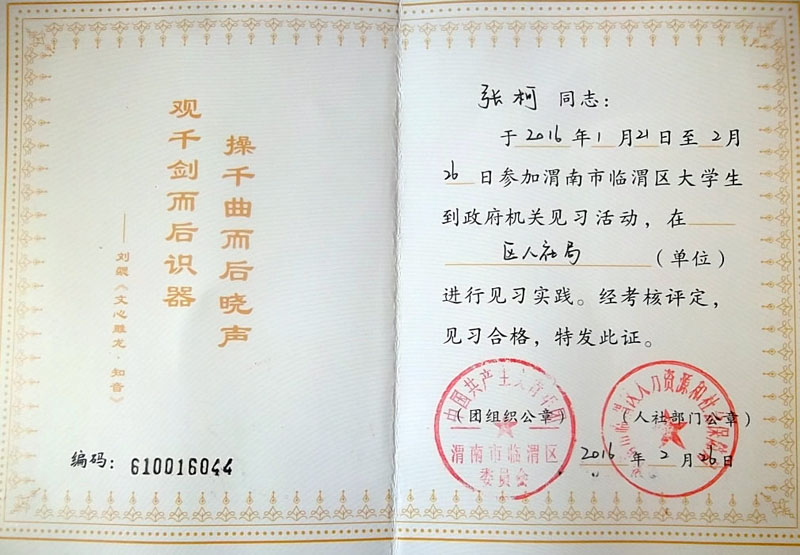 操千曲而后晓声
观千剑而后识器
——刘勰《文心雕龙·知音》
编码：610016044
张柯 同志：
于2016年1月21日至2月
26日参加渭南市临渭区大学生
到政府机关见习活动，在
区人社局（单位）
进行见习实践。经考核评定，
见习合格，特发此证。
（团组织公章）
（人社部门公章）
2016年2月26日
中国共产主义青年团
渭南市临渭区
委员会